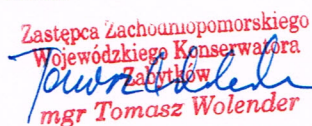 Zastępca Zachodniopomorskiego
Wojewódzkiego Konserwatora
Zabytków
mgr Tomasz Wolender